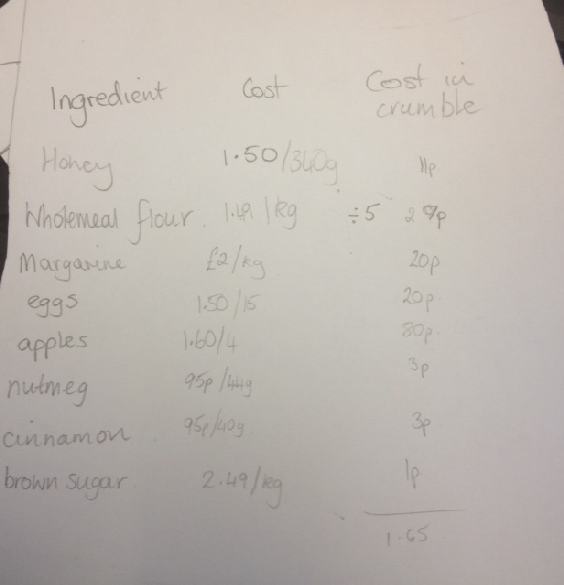 Ingredient Cost Cost in crumble
Honey 1.50/340g 11p
Wholemeal flour. 1.49/kg ÷5 29p
Margarine £2/kg 20p
eggs 1.50/15 20p.
apples 1.60/4 80p.
nutmeg 95p/44g 3p
cinnamon. 95p/40g 3p
brown sugar. 2.49/kg 1p
1.65